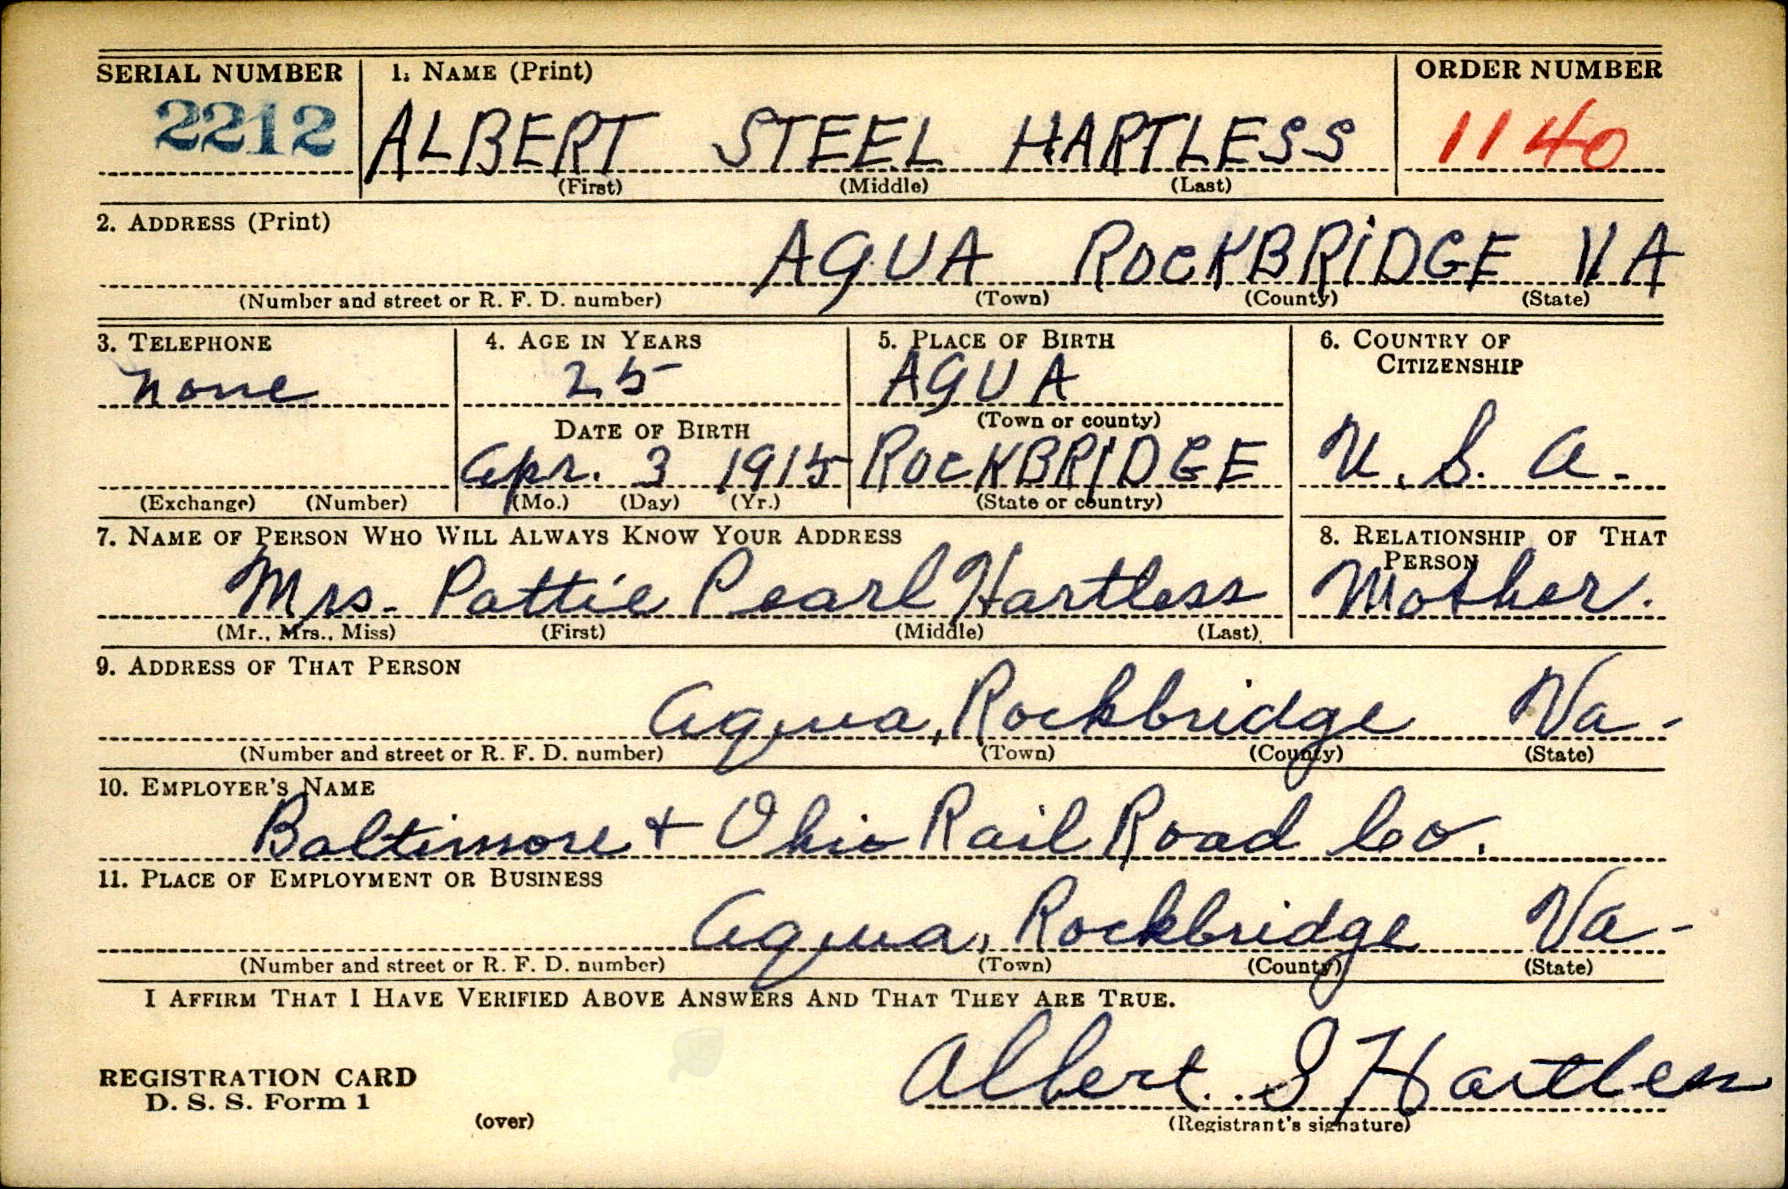 SERIAL NUMBER 1. NAME (Print) ORDER NUMBER
2212 ALBERT STEEL HARTLESS 1140
(First) (Middle) (Last)
2. ADDRESS (Print)
AQUA ROCKBRIDGE VA
(Number and street or R. F. D. number) (Town) (County) (State)
3. TELEPHONE 4. AGE IN YEARS 5. PLACE OF BIRTH 6. COUNTRY OF
CITIZENSHIP
None 25 AQUA
(Town or county)
DATE OF BIRTH
Apr. 3 1915 ROCKBRIDGE U. S. A.
(Exchange) (Number) (Mo.) (Day) (Yr.) (State or country)
7. NAME OF PERSON WHO WILL ALWAYS KNOW YOUR ADDRESS 8. RELATIONSHIP OF THAT
PERSON
Mrs. Pattie Pearl Hartless Mother.
(Mr., Mrs., Miss) (First) (Middle) (Last)
9. ADDRESS OF THAT PERSON
Aqua, Rockbridge Va.
(Number and street or R. F. D. number) (Town) (County) (State)
10. EMPLOYER'S NAME
Baltimore + Ohio Rail Road Co.
11. PLACE OF EMPLOYMENT OR BUSINESS
Aqua, Rockbridge Va.
(Number and street or R. F. D. number) (Town) (County) (State)
I AFFIRM THAT I HAVE VERIFIED ABOVE ANSWERS AND THAT THEY ARE TRUE.
Albert S Hartless
REGISTRATION CARD
D. S. S. Form 1
(over) (Registrant's signature)